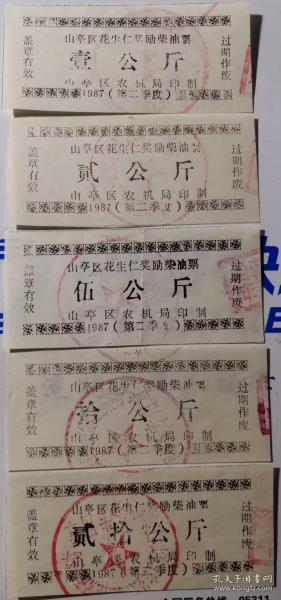 山亭区花生仁奖励柴油票
盖章有效
壹公斤
过期作废
山亭区农机局印制
1987(第二季度)
山亭区花生仁奖励柴油票
盖章有效
贰公斤
过期作废
山亭区农机局印制
1987(第二季度)
山亭区花生仁奖励柴油票
盖章有效
伍公斤
过期作废
山亭区农机局印制
1987(第二季度)
山亭区花生仁奖励柴油票
盖章有效
拾公斤
过期作废
山亭区农机局印制
1987(第二季度)
山亭区花生仁奖励柴油票
盖章有效
贰拾公斤
过期作废
山亭区农机局印制
1987(第二季度)
孔夫子旧书网